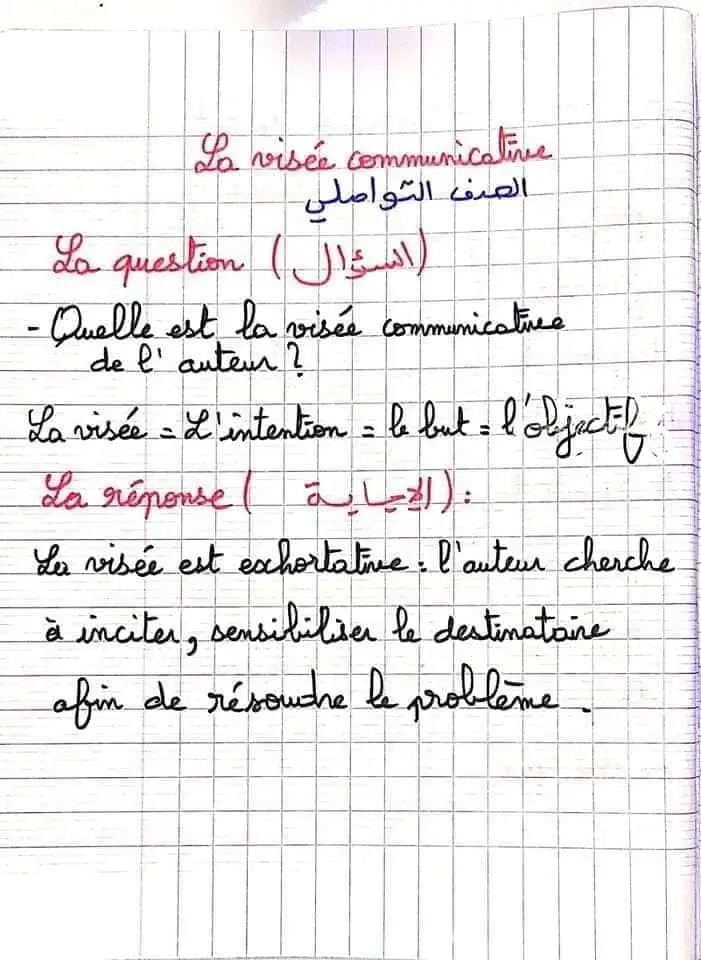 La visée communicative
الهدف التواصلي
La question (السؤال)
- Quelle est la visée communicative
de l'auteur ?
La visée = L'intention = le but = l'objectif
La réponse ( الإجابة ) :
La visée est exhortative : l'auteur cherche
à inciter, sensibiliser le destinataire
afin de résoudre le problème .